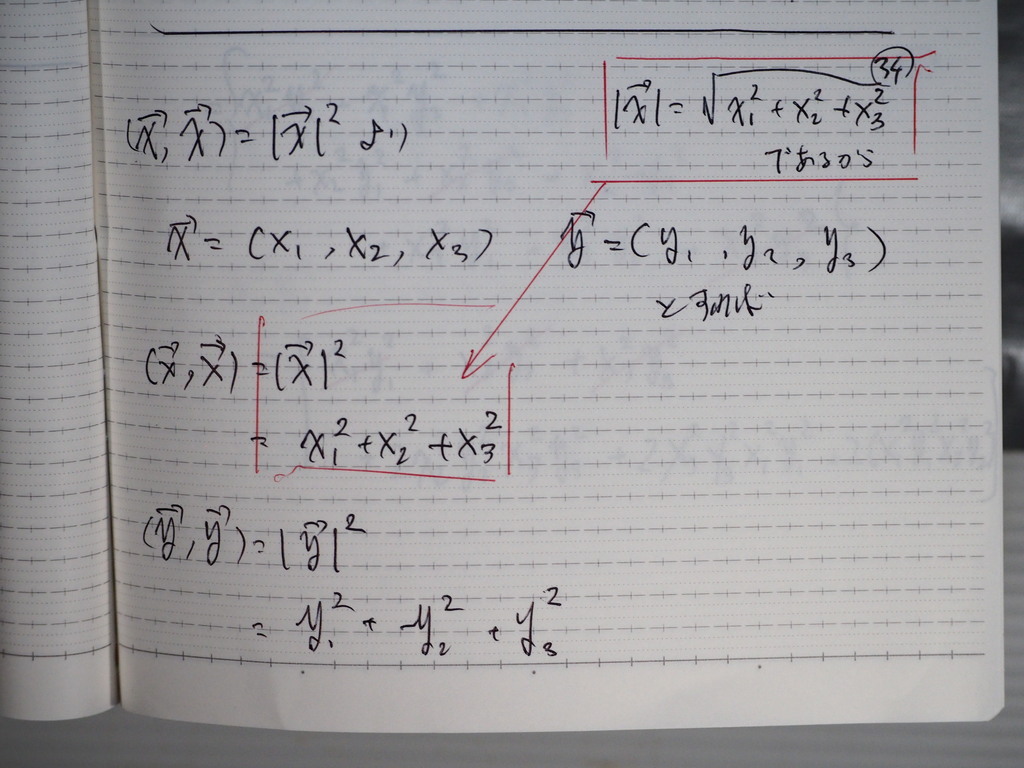 (34)
|x⃗| = √x₁² + x₂² + x₃²
であるから
(x⃗, x⃗) = |x⃗|² より
x⃗ = (x₁, x₂, x₃) y⃗ = (y₁, y₂, y₃)
とすれば
(x⃗, x⃗) = |x⃗|²
= x₁² + x₂² + x₃²
(y⃗, y⃗) = |y⃗|²
= y₁² + y₂² + y₃²